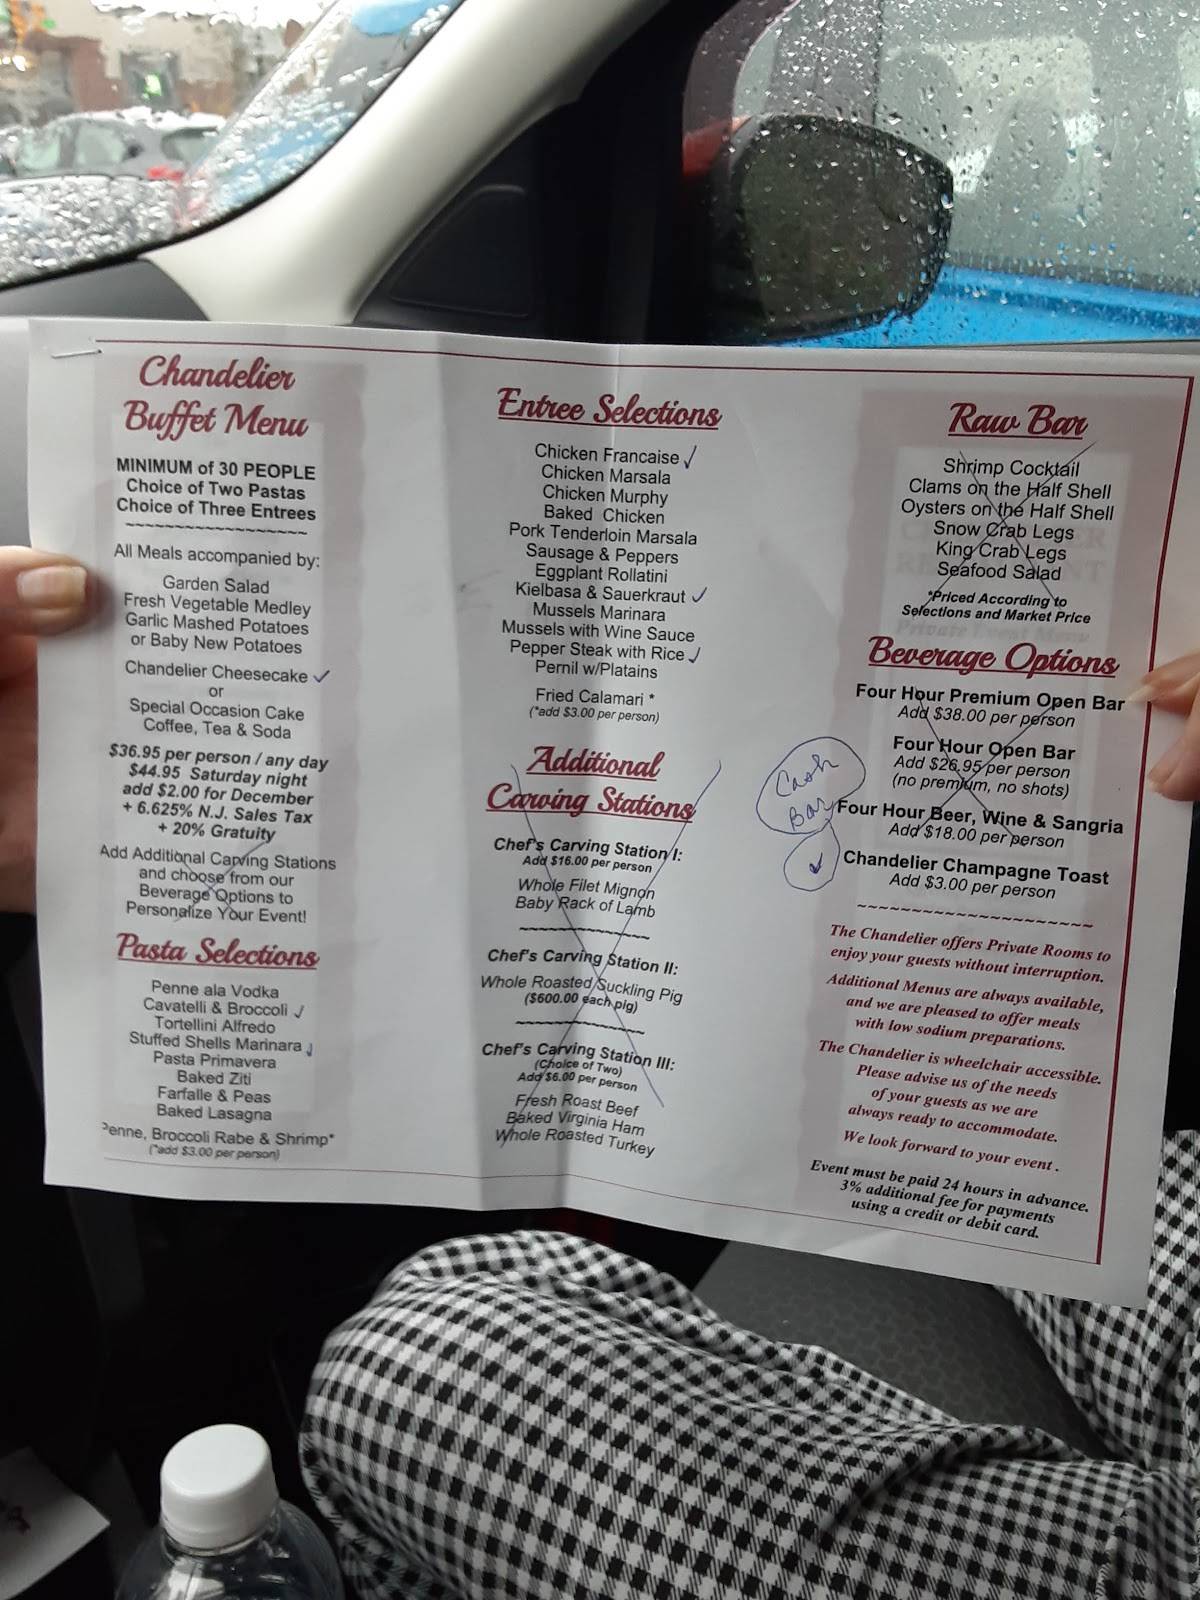 Chandelier
Buffet Menu
MINIMUM of 30 PEOPLE
Choice of Two Pastas
Choice of Three Entrees
~~~~~~~~~~~~~~~~~~
All Meals accompanied by:
Garden Salad
Fresh Vegetable Medley
Garlic Mashed Potatoes
or Baby New Potatoes
Chandelier Cheesecake ✓
or
Special Occasion Cake
Coffee, Tea & Soda
$36.95 per person / any day
$44.95 Saturday night
add $2.00 for December
+ 6.625% N.J. Sales Tax
+ 20% Gratuity
Add Additional Carving Stations
and choose from our
Beverage Options to
Personalize Your Event!
Pasta Selections
Penne ala Vodka
Cavatelli & Broccoli ✓
Tortellini Alfredo
Stuffed Shells Marinara ✓
Pasta Primavera
Baked Ziti
Farfalle & Peas
Baked Lasagna
Penne, Broccoli Rabe & Shrimp*
(*add $3.00 per person)
Entree Selections
Chicken Francaise ✓
Chicken Marsala
Chicken Murphy
Baked Chicken
Pork Tenderloin Marsala
Sausage & Peppers
Eggplant Rollatini
Kielbasa & Sauerkraut ✓
Mussels Marinara
Mussels with Wine Sauce
Pepper Steak with Rice ✓
Pernil w/Platains
Fried Calamari *
(*add $3.00 per person)
Additional
Carving Stations
Chef's Carving Station I:
Add $16.00 per person
Whole Filet Mignon
Baby Rack of Lamb
~~~~~~~~~~~~~
Chef's Carving Station II:
Whole Roasted Suckling Pig
($600.00 each pig)
~~~~~~~~~~~~~
Chef's Carving Station III:
(Choice of Two)
Add $6.00 per person
Fresh Roast Beef
Baked Virginia Ham
Whole Roasted Turkey
Raw Bar
Shrimp Cocktail
Clams on the Half Shell
Oysters on the Half Shell
Snow Crab Legs
King Crab Legs
Seafood Salad
*Priced According to
Selections and Market Price
Beverage Options
Four Hour Premium Open Bar
Add $38.00 per person
Four Hour Open Bar
Add $26.95 per person
(no premium, no shots)
Cash
Bar
Four Hour Beer, Wine & Sangria
Add $18.00 per person
✓
Chandelier Champagne Toast
Add $3.00 per person
~~~~~~~~~~~~~~~~~~~~~
The Chandelier offers Private Rooms to
enjoy your guests without interruption.
Additional Menus are always available,
and we are pleased to offer meals
with low sodium preparations.
The Chandelier is wheelchair accessible.
Please advise us of the needs
of your guests as we are
always ready to accommodate.
We look forward to your event .
Event must be paid 24 hours in advance.
3% additional fee for payments
using a credit or debit card.